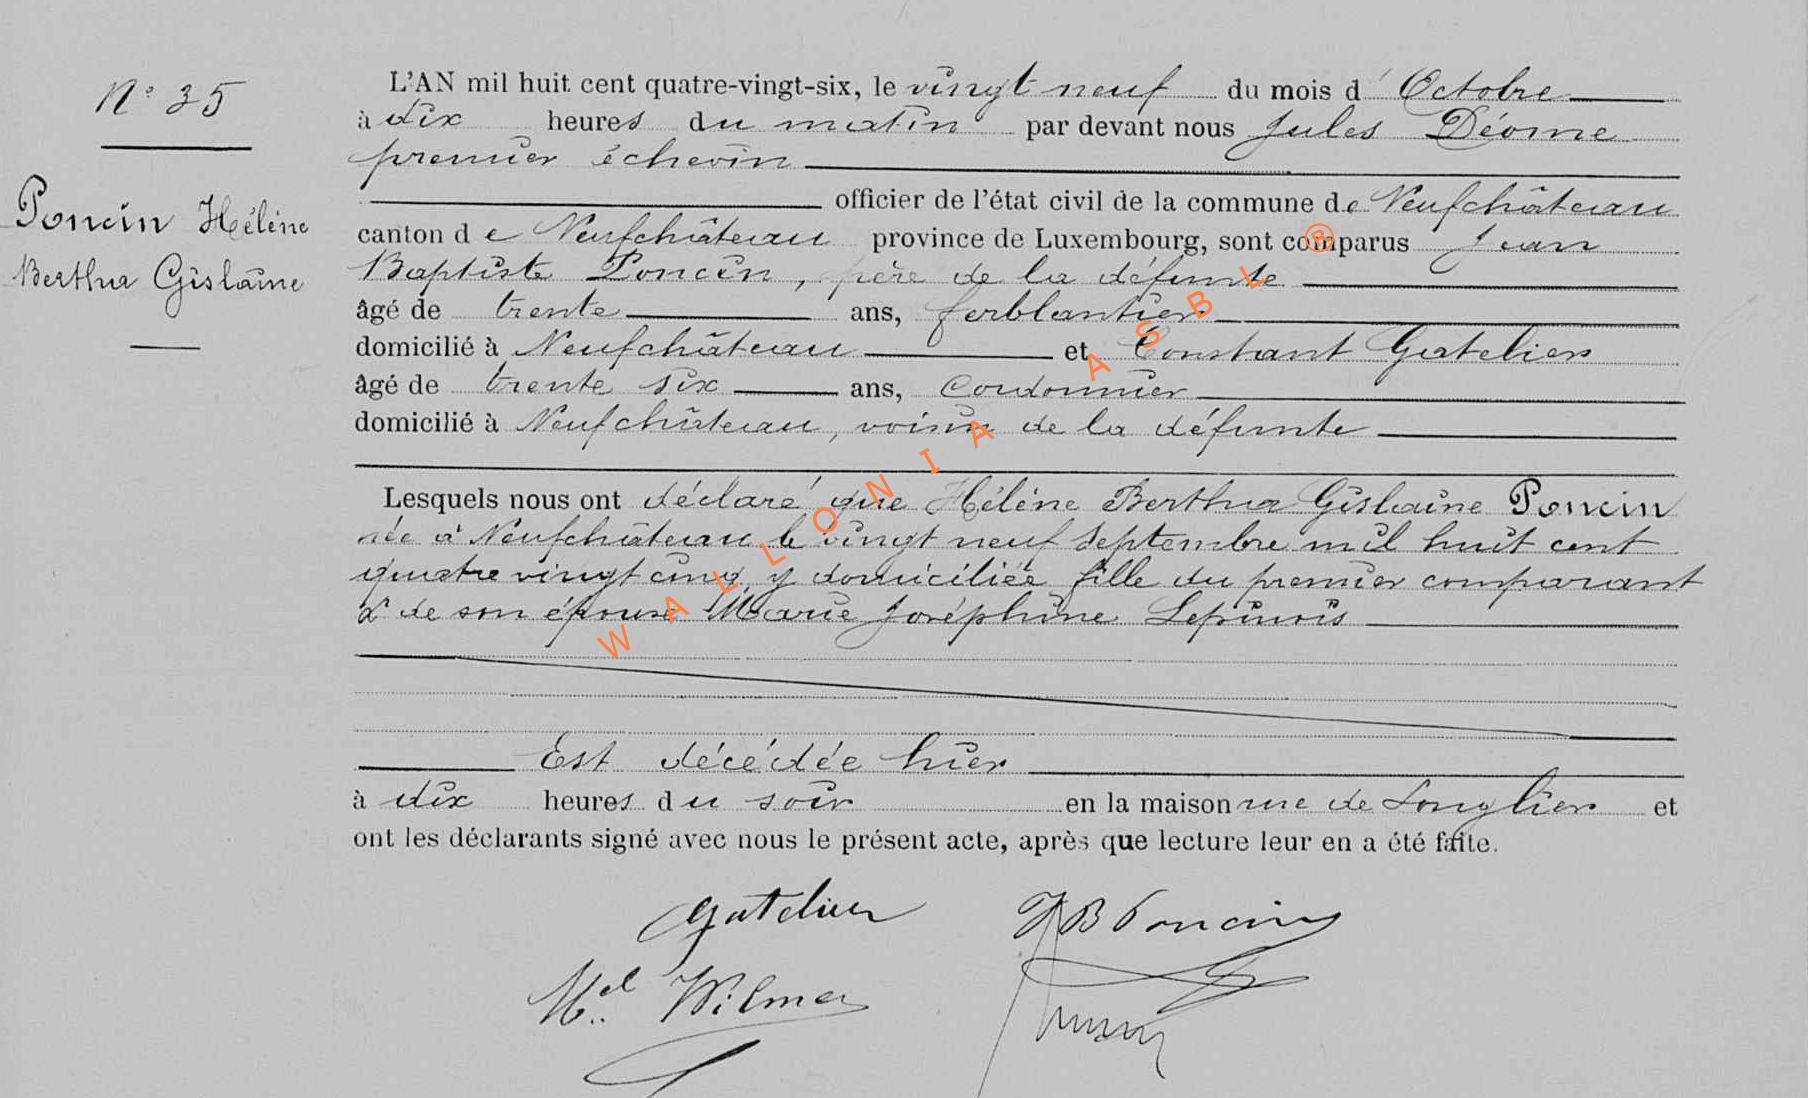 N° 35
Poncin Hélène
Berthe Gislaine
L'AN mil huit cent quatre-vingt-six, le vingt neuf du mois d'Octobre
à dix heures du matin par devant nous Jules Déome
premier échevin
officier de l'état civil de la commune de Neufchâteau
canton de Neufchâteau province de Luxembourg, sont comparus Jean
Baptiste Poncin, père de la défunte
âgé de trente ans, ferblantier
domicilié à Neufchâteau et Constant Gatelier
âgé de trente six ans, Cordonnier
domicilié à Neufchâteau, voisin de la défunte
Lesquels nous ont déclaré que Hélène Bertha Gislaine Poncin
née à Neufchâteau le vingt neuf Septembre mil huit cent
quatre vingt cinq y domiciliée fille du premier comparant
& de son épouse Marie Joséphine Lepinois
Est décédée hier
à dix heures du soir en la maison rue de Longlier et
ont les déclarants signé avec nous le présent acte, après que lecture leur en a été faite.
Gatelier JB Poncin
Mel Wilmer
WALLONIA ASBL ®